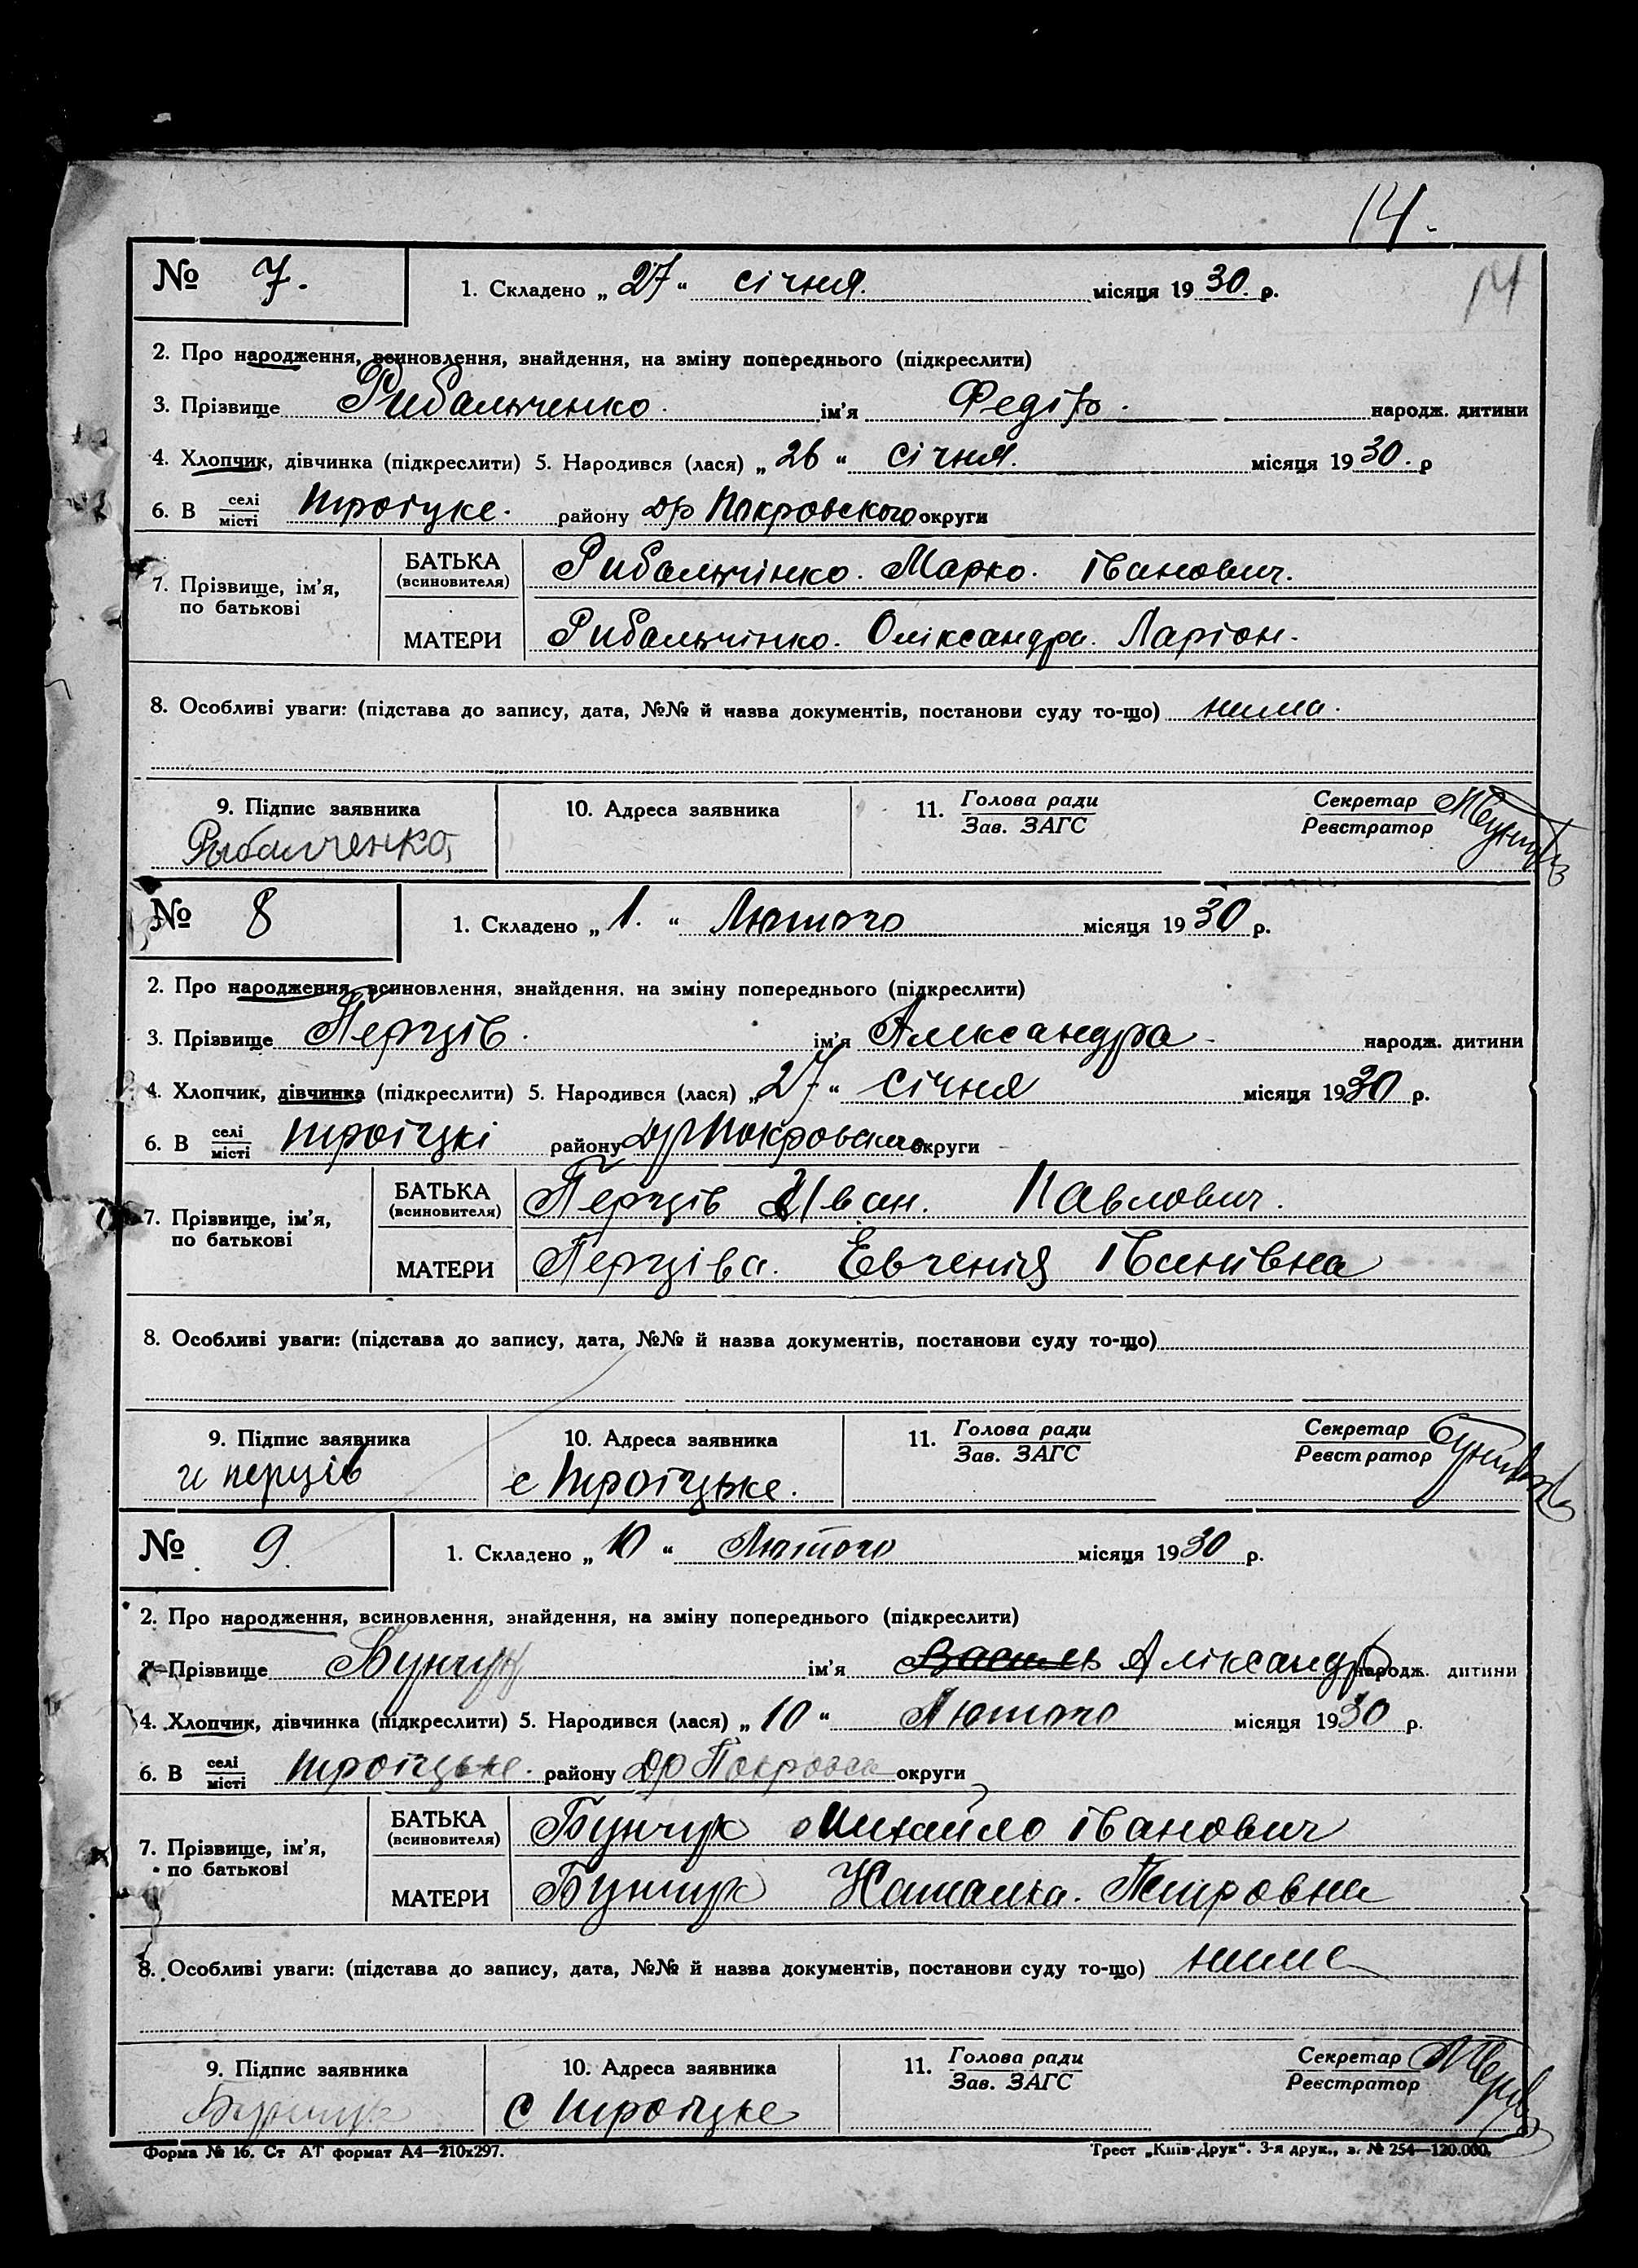 14.
14
№ 7. 1. Складено „ 27 “ січня. місяця 19 30. р.
2. Про народження, всиновлення, знайдення, на зміну попереднього (підкреслити)
3. Прізвище Рибальченко. ім'я Федір. народж. дитини
4. Хлопчик, дівчинка (підкреслити) 5. Народився (лася) „ 26 “ січня. місяця 19 30. р
6. В селі/місті Троіцке. району Др Покровского округи
7. Прізвище, ім'я, по батькові
БАТЬКА (всиновителя) Рибальчінко. Марко. іванович.
МАТЕРИ Рибальчінко. Оліксандра. Ларіон.
8. Особливі уваги: (підстава до запису, дата, №№ й назва документів, постанови суду то-що) нима.
9. Підпис заявника 10. Адреса заявника 11. Голова ради/Зав. ЗАГС Секретар/Реєстратор
Рыбалченко
№ 8 1. Складено „ 1. “ Лютого місяця 19 30 р.
2. Про народження, всиновлення, знайдення, на зміну попереднього (підкреслити)
3. Прізвище Перців. ім'я Александра народж. дитини
4. Хлопчик, дівчинка (підкреслити) 5. Народився (лася) „ 27 “ січня місяця 19 30 р.
6. В селі/місті Троіцкі району Др Покровского округи
7. Прізвище, ім'я, по батькові
БАТЬКА (всиновителя) Перців Иван. Павлович.
МАТЕРИ Перціва. Евгенія іванівна
8. Особливі уваги: (підстава до запису, дата, №№ й назва документів, постанови суду то-що)
9. Підпис заявника 10. Адреса заявника 11. Голова ради/Зав. ЗАГС Секретар/Реєстратор
и перців с Троіцьке.
№ 9. 1. Складено „ 10 “ Лютого місяця 19 30 р.
2. Про народження, всиновлення, знайдення, на зміну попереднього (підкреслити)
3. Прізвище Бунчук ім'я Василь Аліксандр народж. дитини
4. Хлопчик, дівчинка (підкреслити) 5. Народився (лася) „ 10 “ Лютого місяця 19 30 р.
6. В селі/місті Троіцьке. району Др Покровса округи
7. Прізвище, ім'я, по батькові
БАТЬКА (всиновителя) Бунчук Михайло іванович
МАТЕРИ Бунчук Наталка. Петровна
8. Особливі уваги: (підстава до запису, дата, №№ й назва документів, постанови суду то-що) нима
9. Підпис заявника 10. Адреса заявника 11. Голова ради/Зав. ЗАГС Секретар/Реєстратор
Бунчук с Троіцке
Форма № 16. Ст АТ формат А4—210х297. Трест „Київ-Друк“. 3-я друк., з. № 254—120.000.